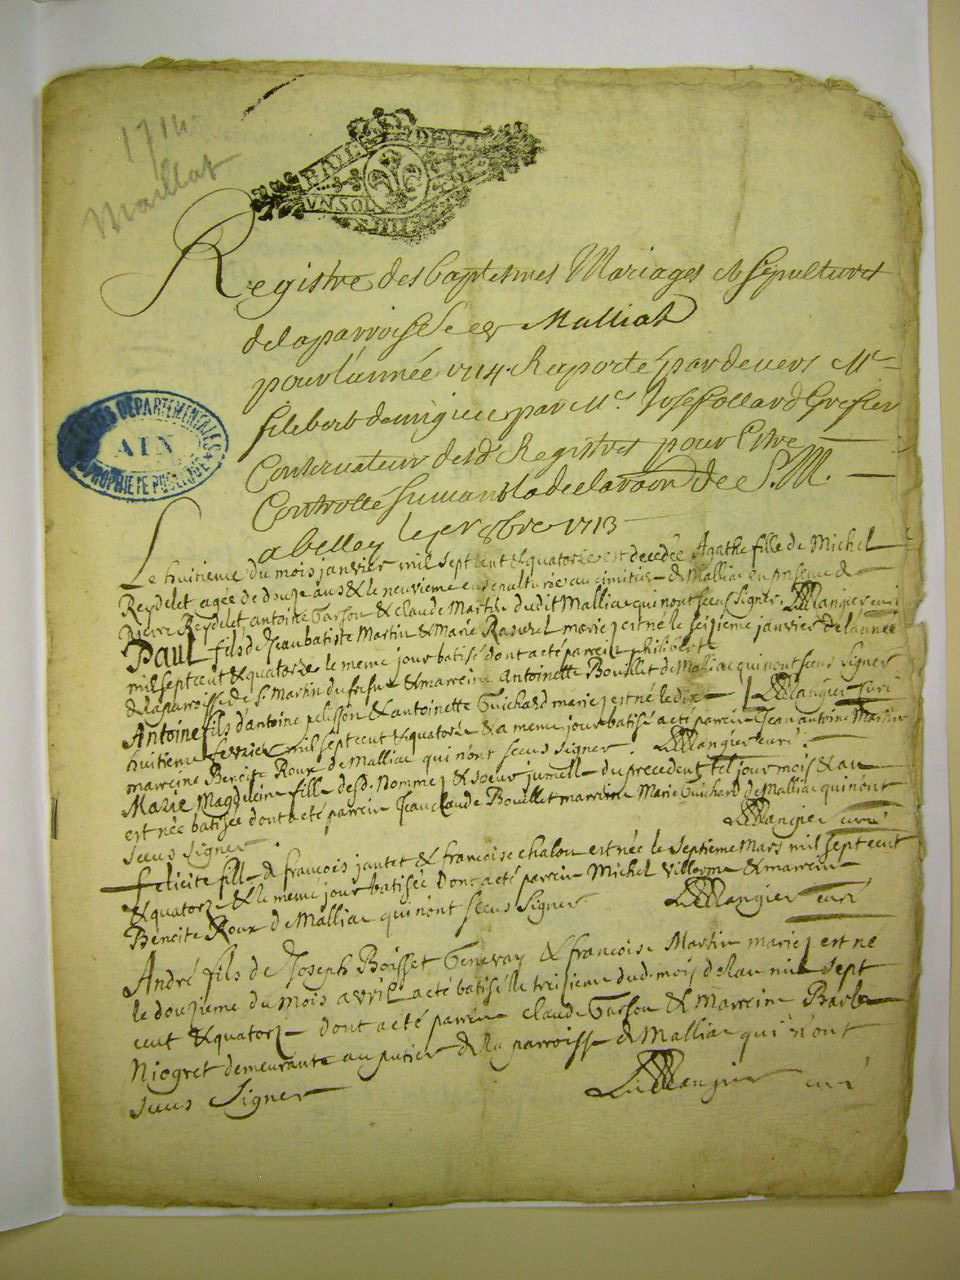 1714
Maillat
BAIL DE
UN SOL
ARCHIVES DÉPARTEMENTALES
AIN
PROPRIÉTÉ PUBLIQUE
Registre des baptesmes Mariages et Sepultures
de la parroisse de Malliat
pour l'année 1714. Raporté par devers Mr
filebert par Mr. Josef ollard Grefier
Conservateur desd Registres pour Estre
Controllé suivant la declaraõn de S. M.
a belley le 8bre 1713
Le huitieme du mois janvier mil sept cent & quatorze est decedée Agathe fille de Michel
Reydelet agée de douze ans & le neuvieme ensepulturée au cimitiere de Malliac en presence de
Pierre Reydelet antoine Garson & claude Martin dudit Malliac qui n'ont sceus signer. Langier curé
Paul fils de Jean batiste Martin & Marie Rasurel mariez est né le seizieme janvier de l'année
mil sept cent & quatorze le meme jour batisé dont a eté parrein philibert
de la paroisse de St. Martin du fresne & marreine Antoinette Bouillet de Malliac qui n'ont sceus signer
Antoine fils d'antoine pelisson & antoinette Guichard mariez est né le dix Langier curé
huitieme fevrier mil sept cent & quatorze & a meme jour batisé a eté parrein Jean antoine Martin
marreine Benoite Roux de Malliac qui n'ont sceus signer. Langier curé
Marie Magdeleine fille desd. Nommez & soeur jumelle du precedent tel jour mois & an
est née batisée dont a eté parrein Jean claude Bouillet marreine Marie Guichard de Malliac qui n'ont
sceus signer Langier curé
felicite fille de francois jantet & francoise chalon est née le septieme Mars mil sept cent
& quatorze & le meme jour batisée dont a eté parrein Michel Villerme & marreine
Benoite Roux de Malliac qui n'ont sceus signer Langier curé
André fils de Joseph Boisset Genevay & francoise Martin mariez est ne
le douzieme du mois avril a eté batisé le treisieme dud. mois de l'an mil sept
cent & quatorze dont a eté parrein claude Garson & Marreine Barbe
Niogret demeurante au putier de la parroisse de Malliac qui n'ont
sceus signer Langier curé